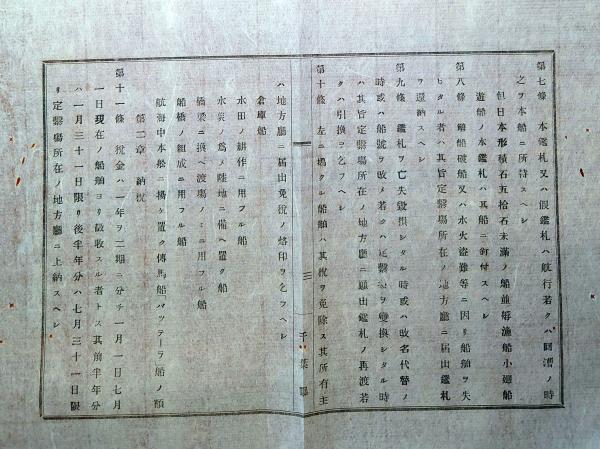 第七條 本鑑札又ハ假鑑札ハ航行若クハ回漕ノ時
之ヲ本船ニ所持スヘシ
但日本形積石五拾石未滿ノ船並艀漁船小廻船
遊船ノ本鑑札ハ其船ニ釘付スヘシ
第八條 難船破船又ハ水火盜難等ニ因リ船舶ヲ失
ヒタル者ハ其旨定繫場所在ノ地方廳ニ届出鑑札
ヲ還納スヘシ
第九條 鑑札ヲ亡失毀損シタル時或ハ改名代替ノ
時或ハ船號ヲ改メ若クハ定繫場ヲ變換シタル時
ハ其旨定繫場所在ノ地方廳ニ願出鑑札ノ再渡若
クハ引換ヲ乞フヘシ
第十條 左ニ揭クル船舶ハ其稅ヲ免除ス其所有主
三
千葉縣
ハ地方廳ニ届出免稅ノ烙印ヲ乞フヘシ
倉庫船
水田ノ耕作ニ用フル船
水災ノ爲メ陸地ニ備ヘ置ク船
橋梁ニ換ヘ渡場ノミニ用フル船
船橋ノ組成ニ用フル船
航海中本船ニ揚ケ置ク傳馬船バッテーラ船ノ類
第二章 納稅
第十一條 稅金ハ一年ヲ二期ニ分チ一月一日七月
一日現在ノ船舶ヨリ徵收スル者トス其前半年分
ハ一月三十一日限リ後半年分ハ七月三十一日限
リ定繫場所在ノ地方廳ニ上納スヘシ